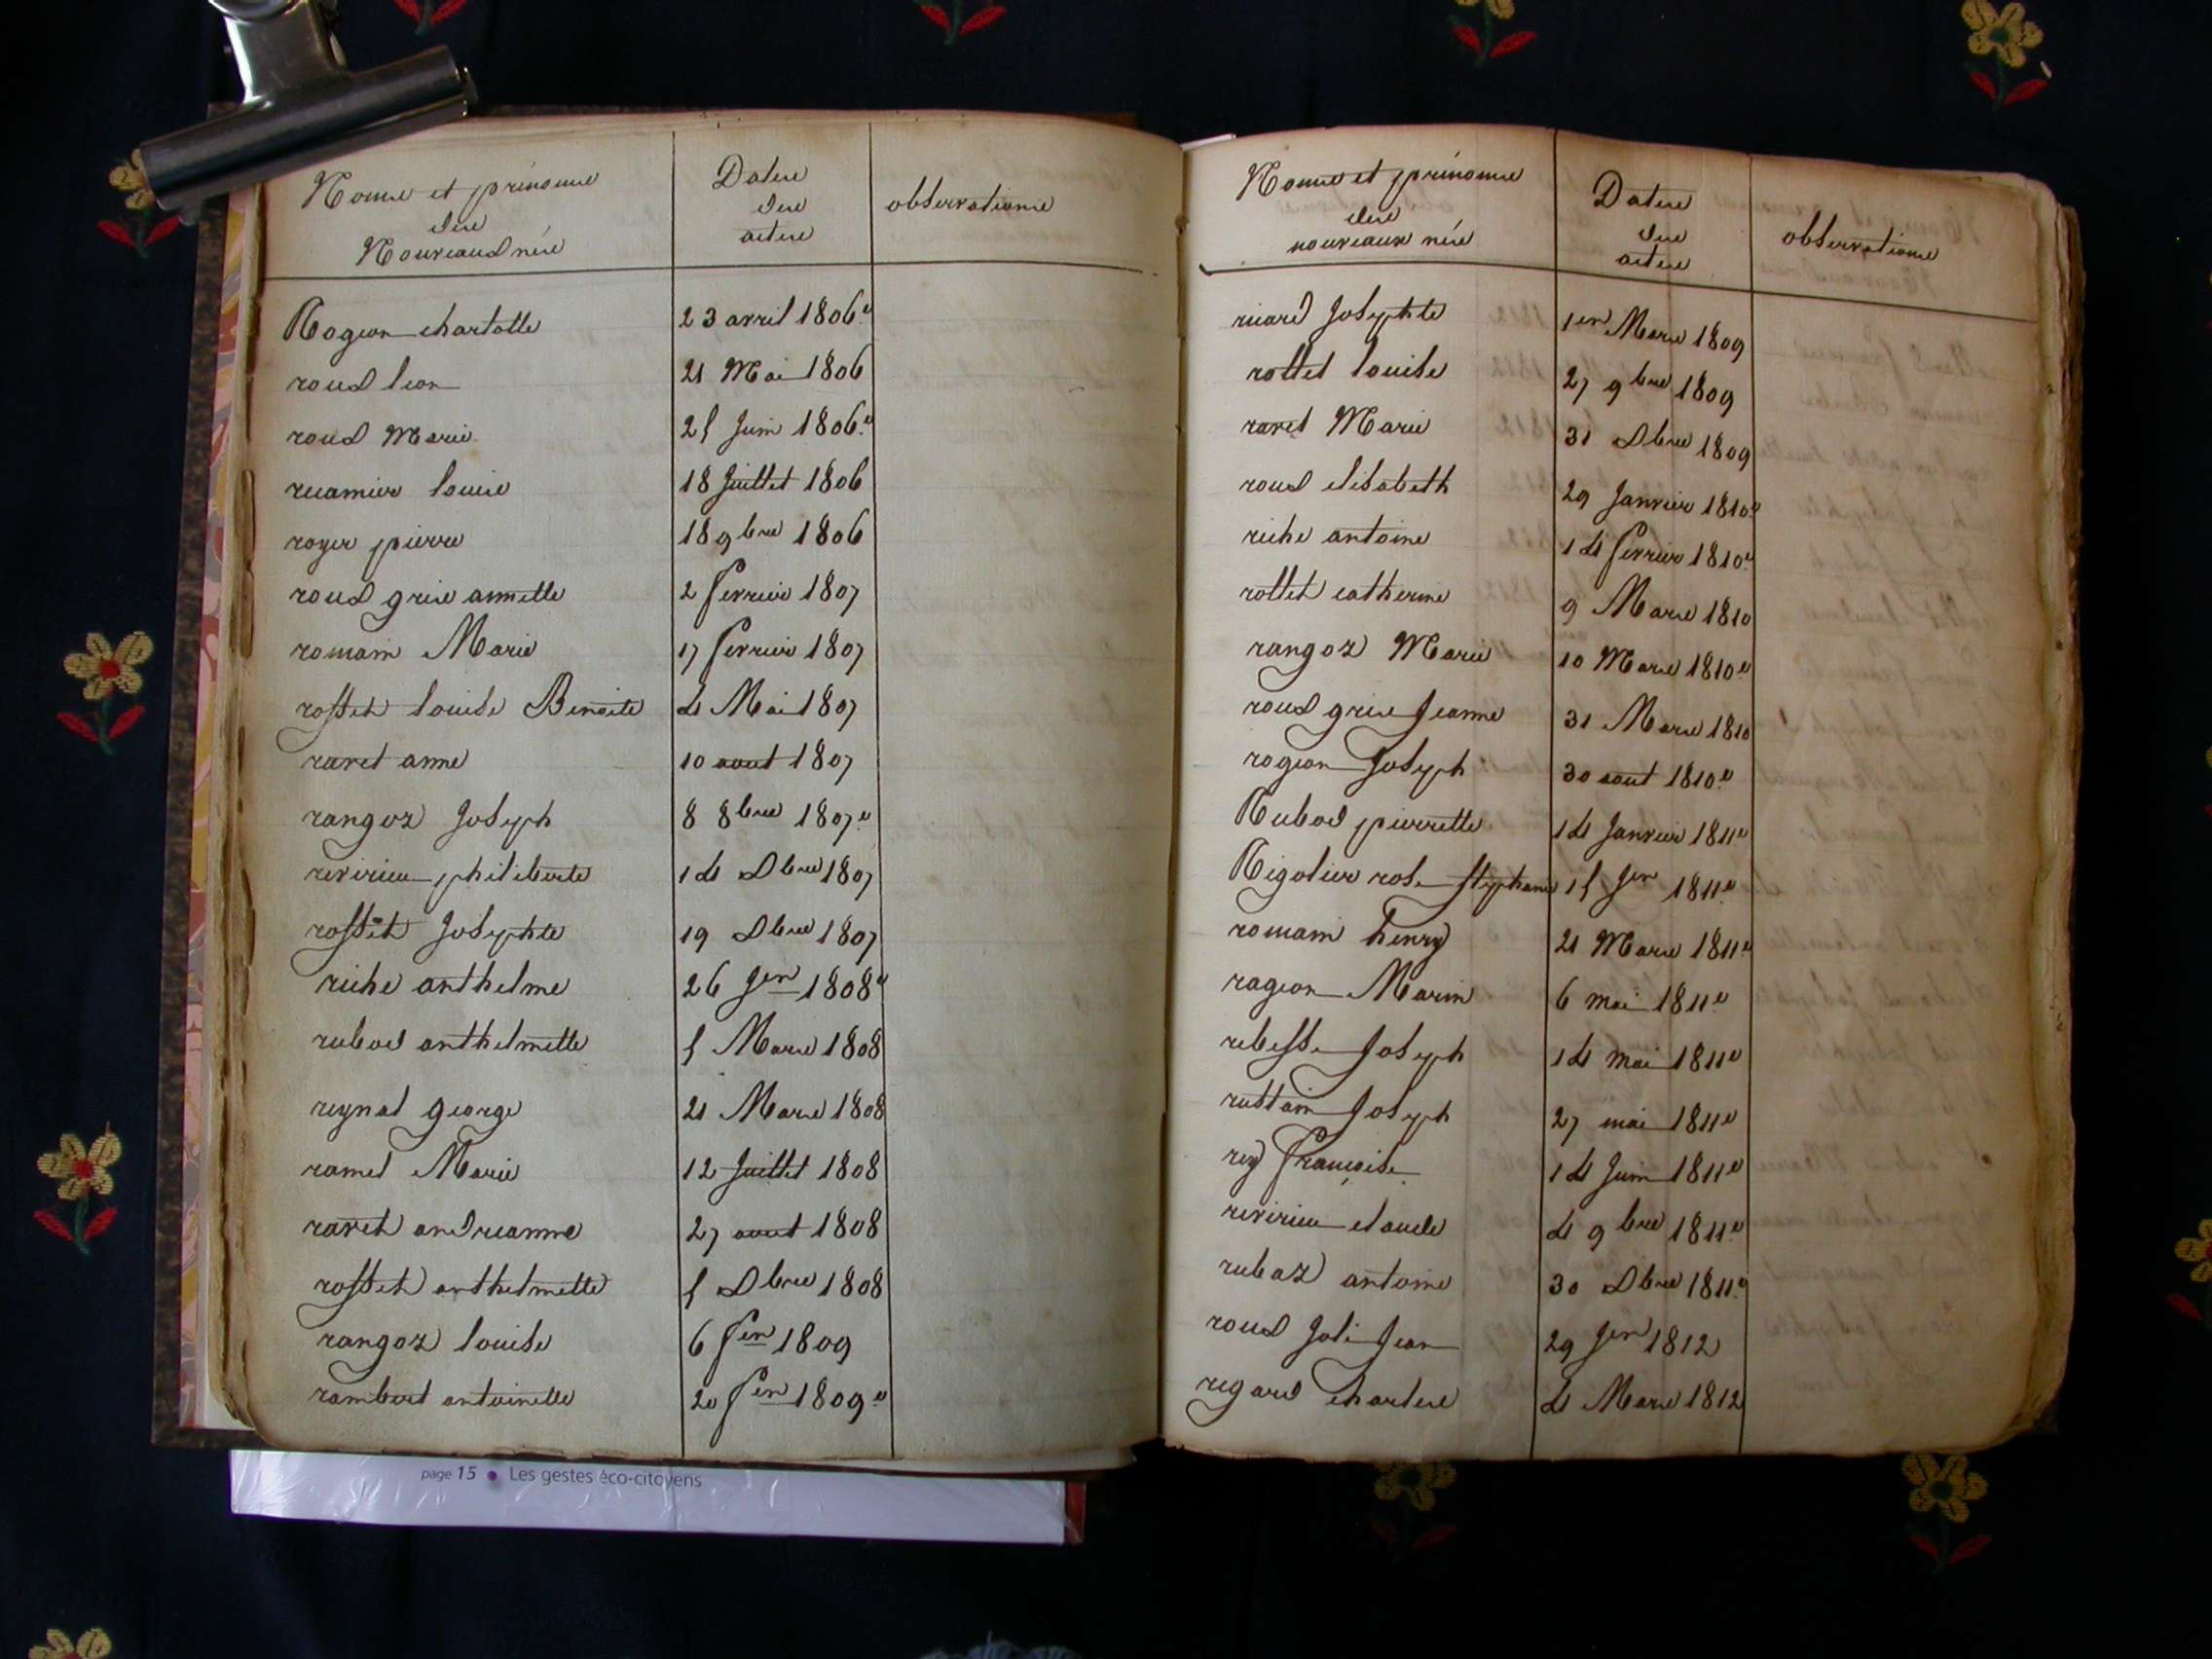 Noms et prénoms
des
Nouveaux nés
Dates
des
actes
observations
Rogeon charlotte 23 avril 1806
roux leon 21 Mai 1806
roux Marie 25 Juin 1806
recamier louis 18 Juillet 1806
royer pierre 18 9bre 1806
roux gris annette 2 fevrier 1807
romain Marie 17 fevrier 1807
rosset louise Benoite 4 Mai 1807
ravet anne 10 aout 1807
rangoz Joseph 8 8bre 1807
revirieu philiberte 14 Dbre 1807
rosset Josephte 19 Dbre 1807
riche anthelme 26 Jer 1808
rubod anthelmette 5 Mars 1808
reynal george 21 Mars 1808
ramel Marie 12 Juillet 1808
ravet andreanne 27 aout 1808
rosset anthelmette 5 Dbre 1808
rangoz louise 6 fer 1809
rambert antoinette 20 fer 1809
Noms et prénoms
des
nouveaux nés
Dates
des
actes
observations
ricard Josephte 1er Mars 1809
rottet louise 27 9bre 1809
ravet Marie 31 Dbre 1809
roux elisabeth 29 Janvier 1810
riche antoine 14 fevrier 1810
rottet catherine 9 Mars 1810
rangoz Marie 10 Mars 1810
roux gris Jeanne 31 Mars 1810
rogeon Joseph 30 aout 1810
Rubod pierrette 14 Janvier 1811
Rigotier rose stephanie 15 Jer 1811
romain henry 21 Mars 1811
rageon Marin 6 mai 1811
rebesse Joseph 14 mai 1811
rustain Joseph 27 mai 1811
rey françoise 14 Juin 1811
revirieu claude 4 9bre 1811
rubaz antoine 30 Dbre 1811
roux Joli Jean 29 Jer 1812
regard charles 4 Mars 1812
page 15 • Les gestes éco-citoyens